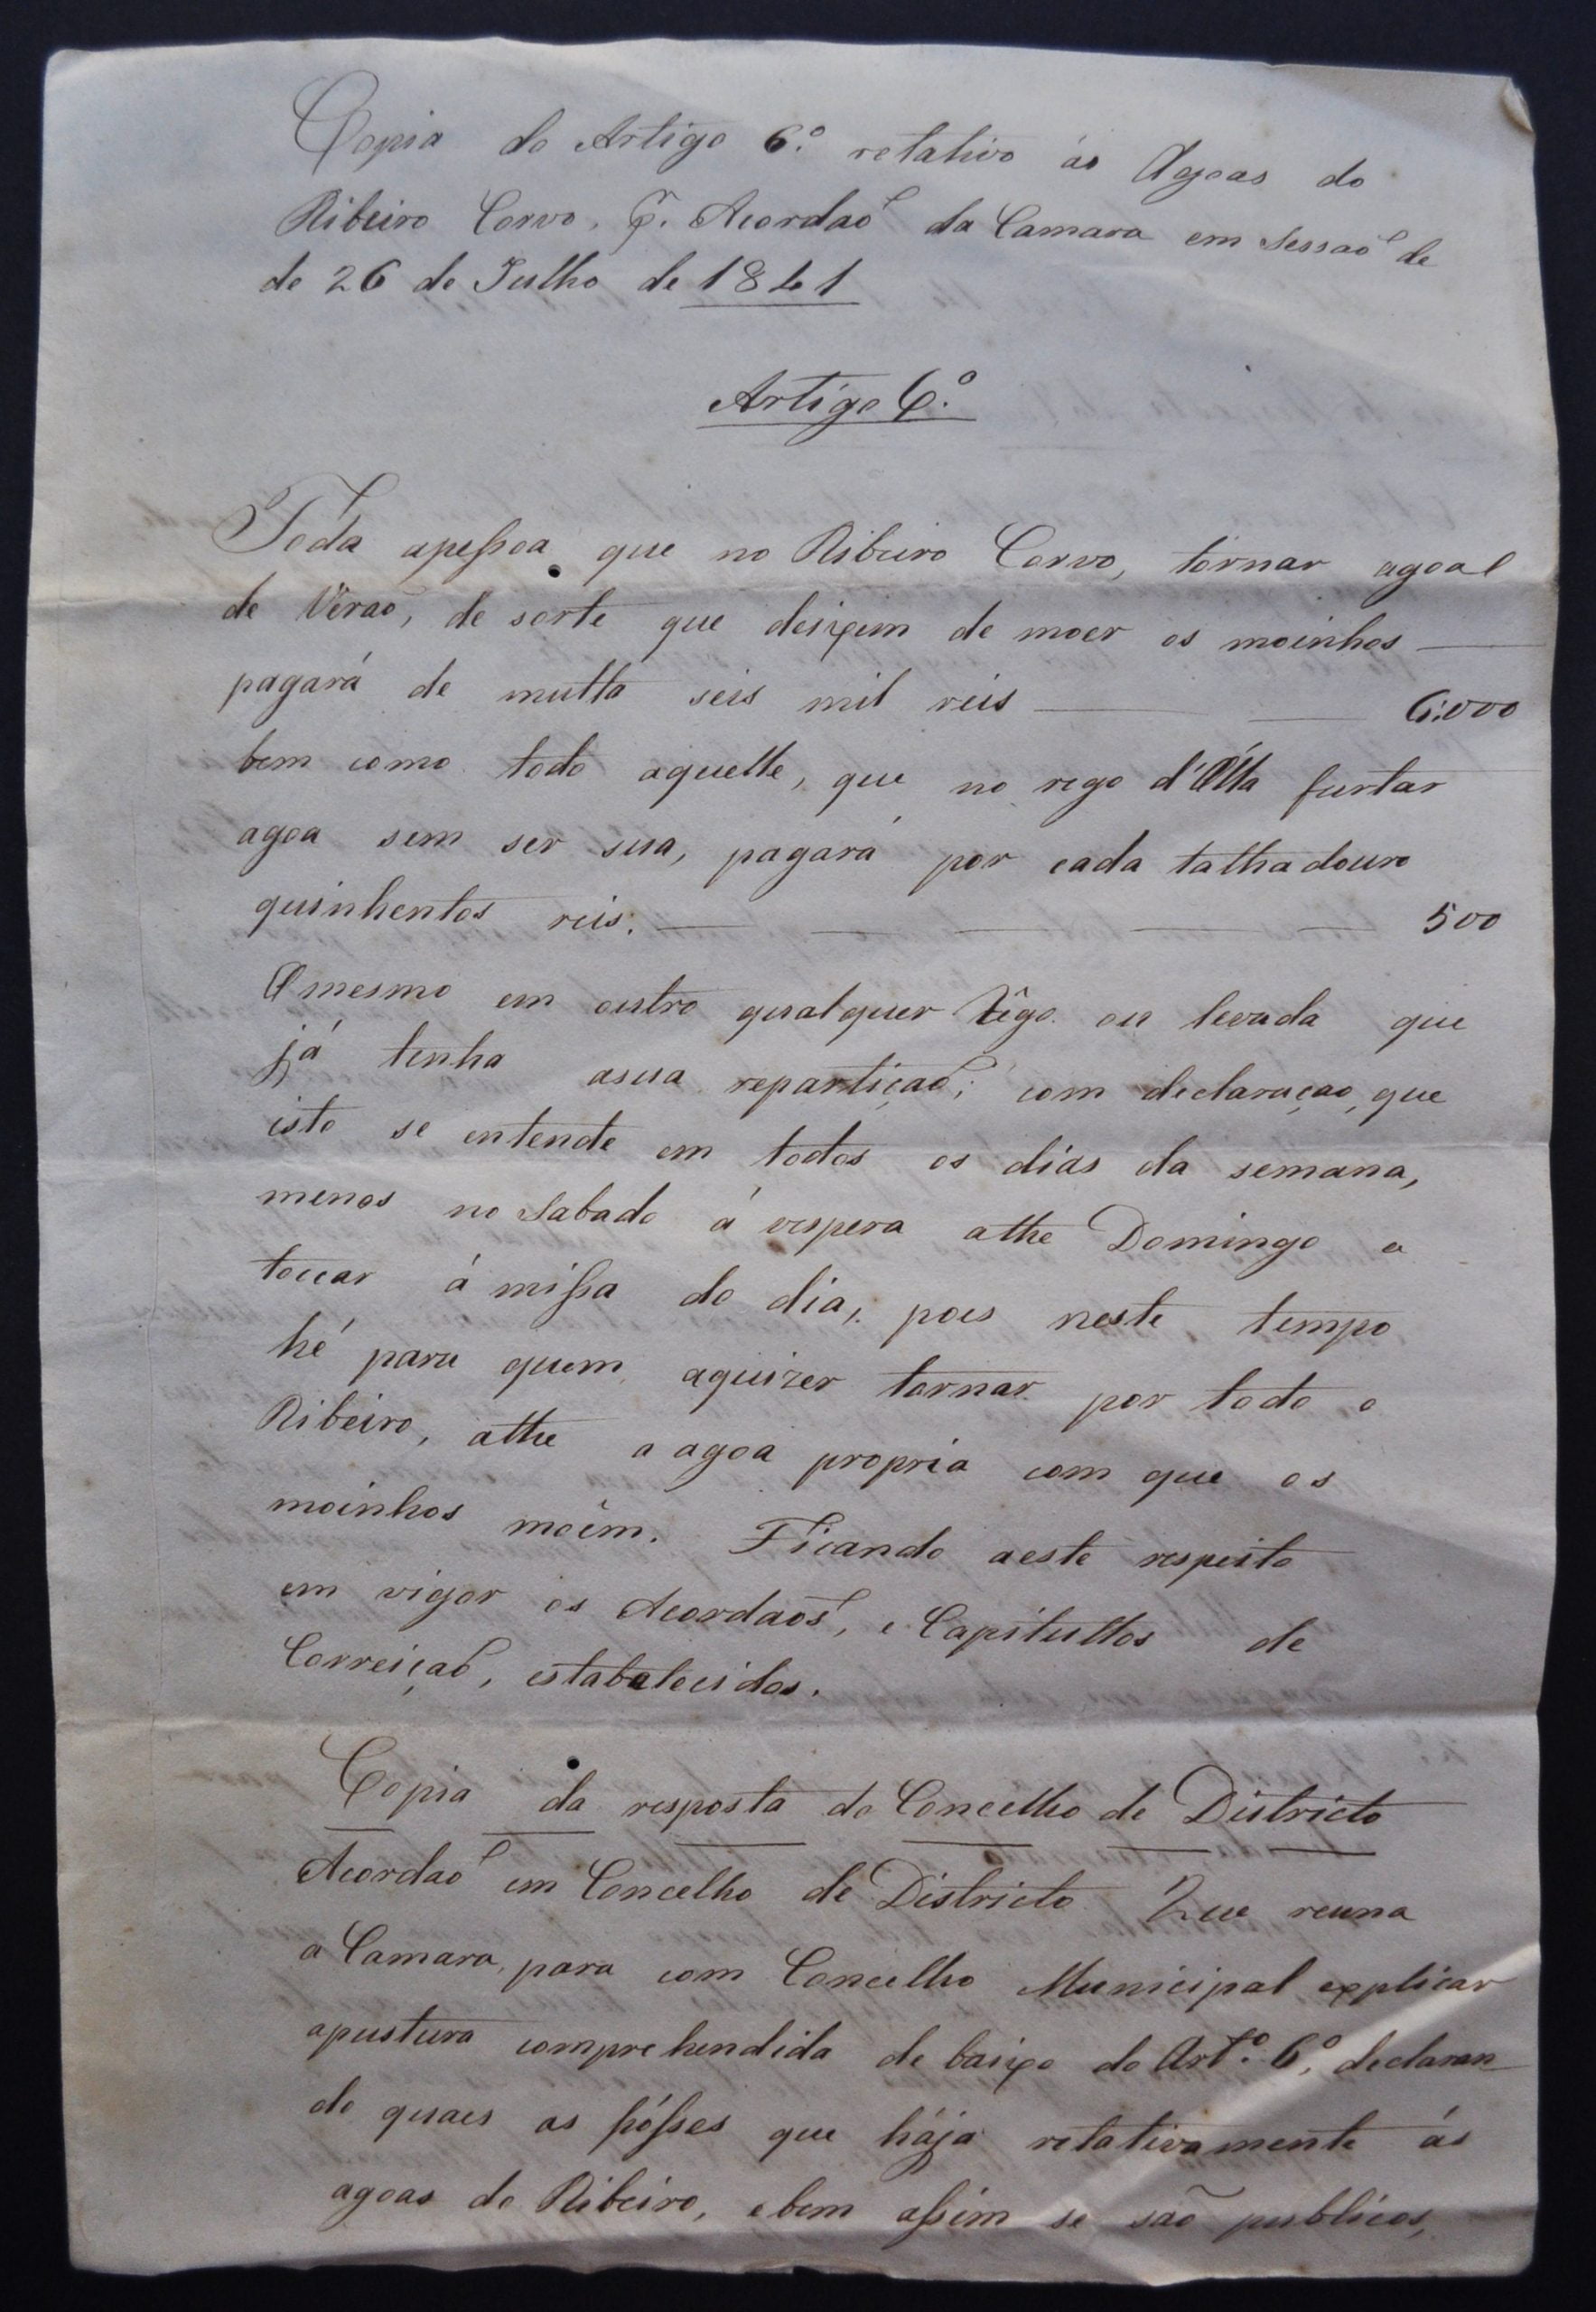 Copia do Artigo 6.º relativo ás Agoas do
Ribeiro Corvo, p.r Acordaõ da Camara em Sessaõ de
de 26 de Julho de 1841
Artigo 6.º
Toda apeſsoa que no Ribeiro Corvo, tornar agoa
de Veraõ, de sorte que deixem de moer os moinhos —
pagará de multa seis mil reis — — 6:000
bem como todo aquelle, que no rego d'Alta furtar
agoa sem ser sua, pagará por cada talhadouro
quinhentos reis. — — — — — 500
O mesmo em outro qualquer rêgo ou levada que
já tenha asua repartiçaõ; com declaraçaõ, que
isto se entende em todos os dias da semana,
menos no Sabado á vespera athe Domingo a
toccar á miſsa do dia, pois neste tempo
hé para quem aquizer tornar por todo o
Ribeiro, athe a agoa propria com que os
moinhos moêm. Ficando aeste respeito
em vigor os Acordaõs, e Capitullos de
Correiçaõ, estabalecidos.
Copia da resposta do Concelho de Districto
Acordaõ em Concelho de Districto Que reuna
a Camara, para com Concelho Municipal explicar
apustura comprehendida de baixo do Art.º 6.º, declaran
do quaes as póſses que hája relativamente ás
agoas do Ribeiro, ebem aſsim se saõ publicos,